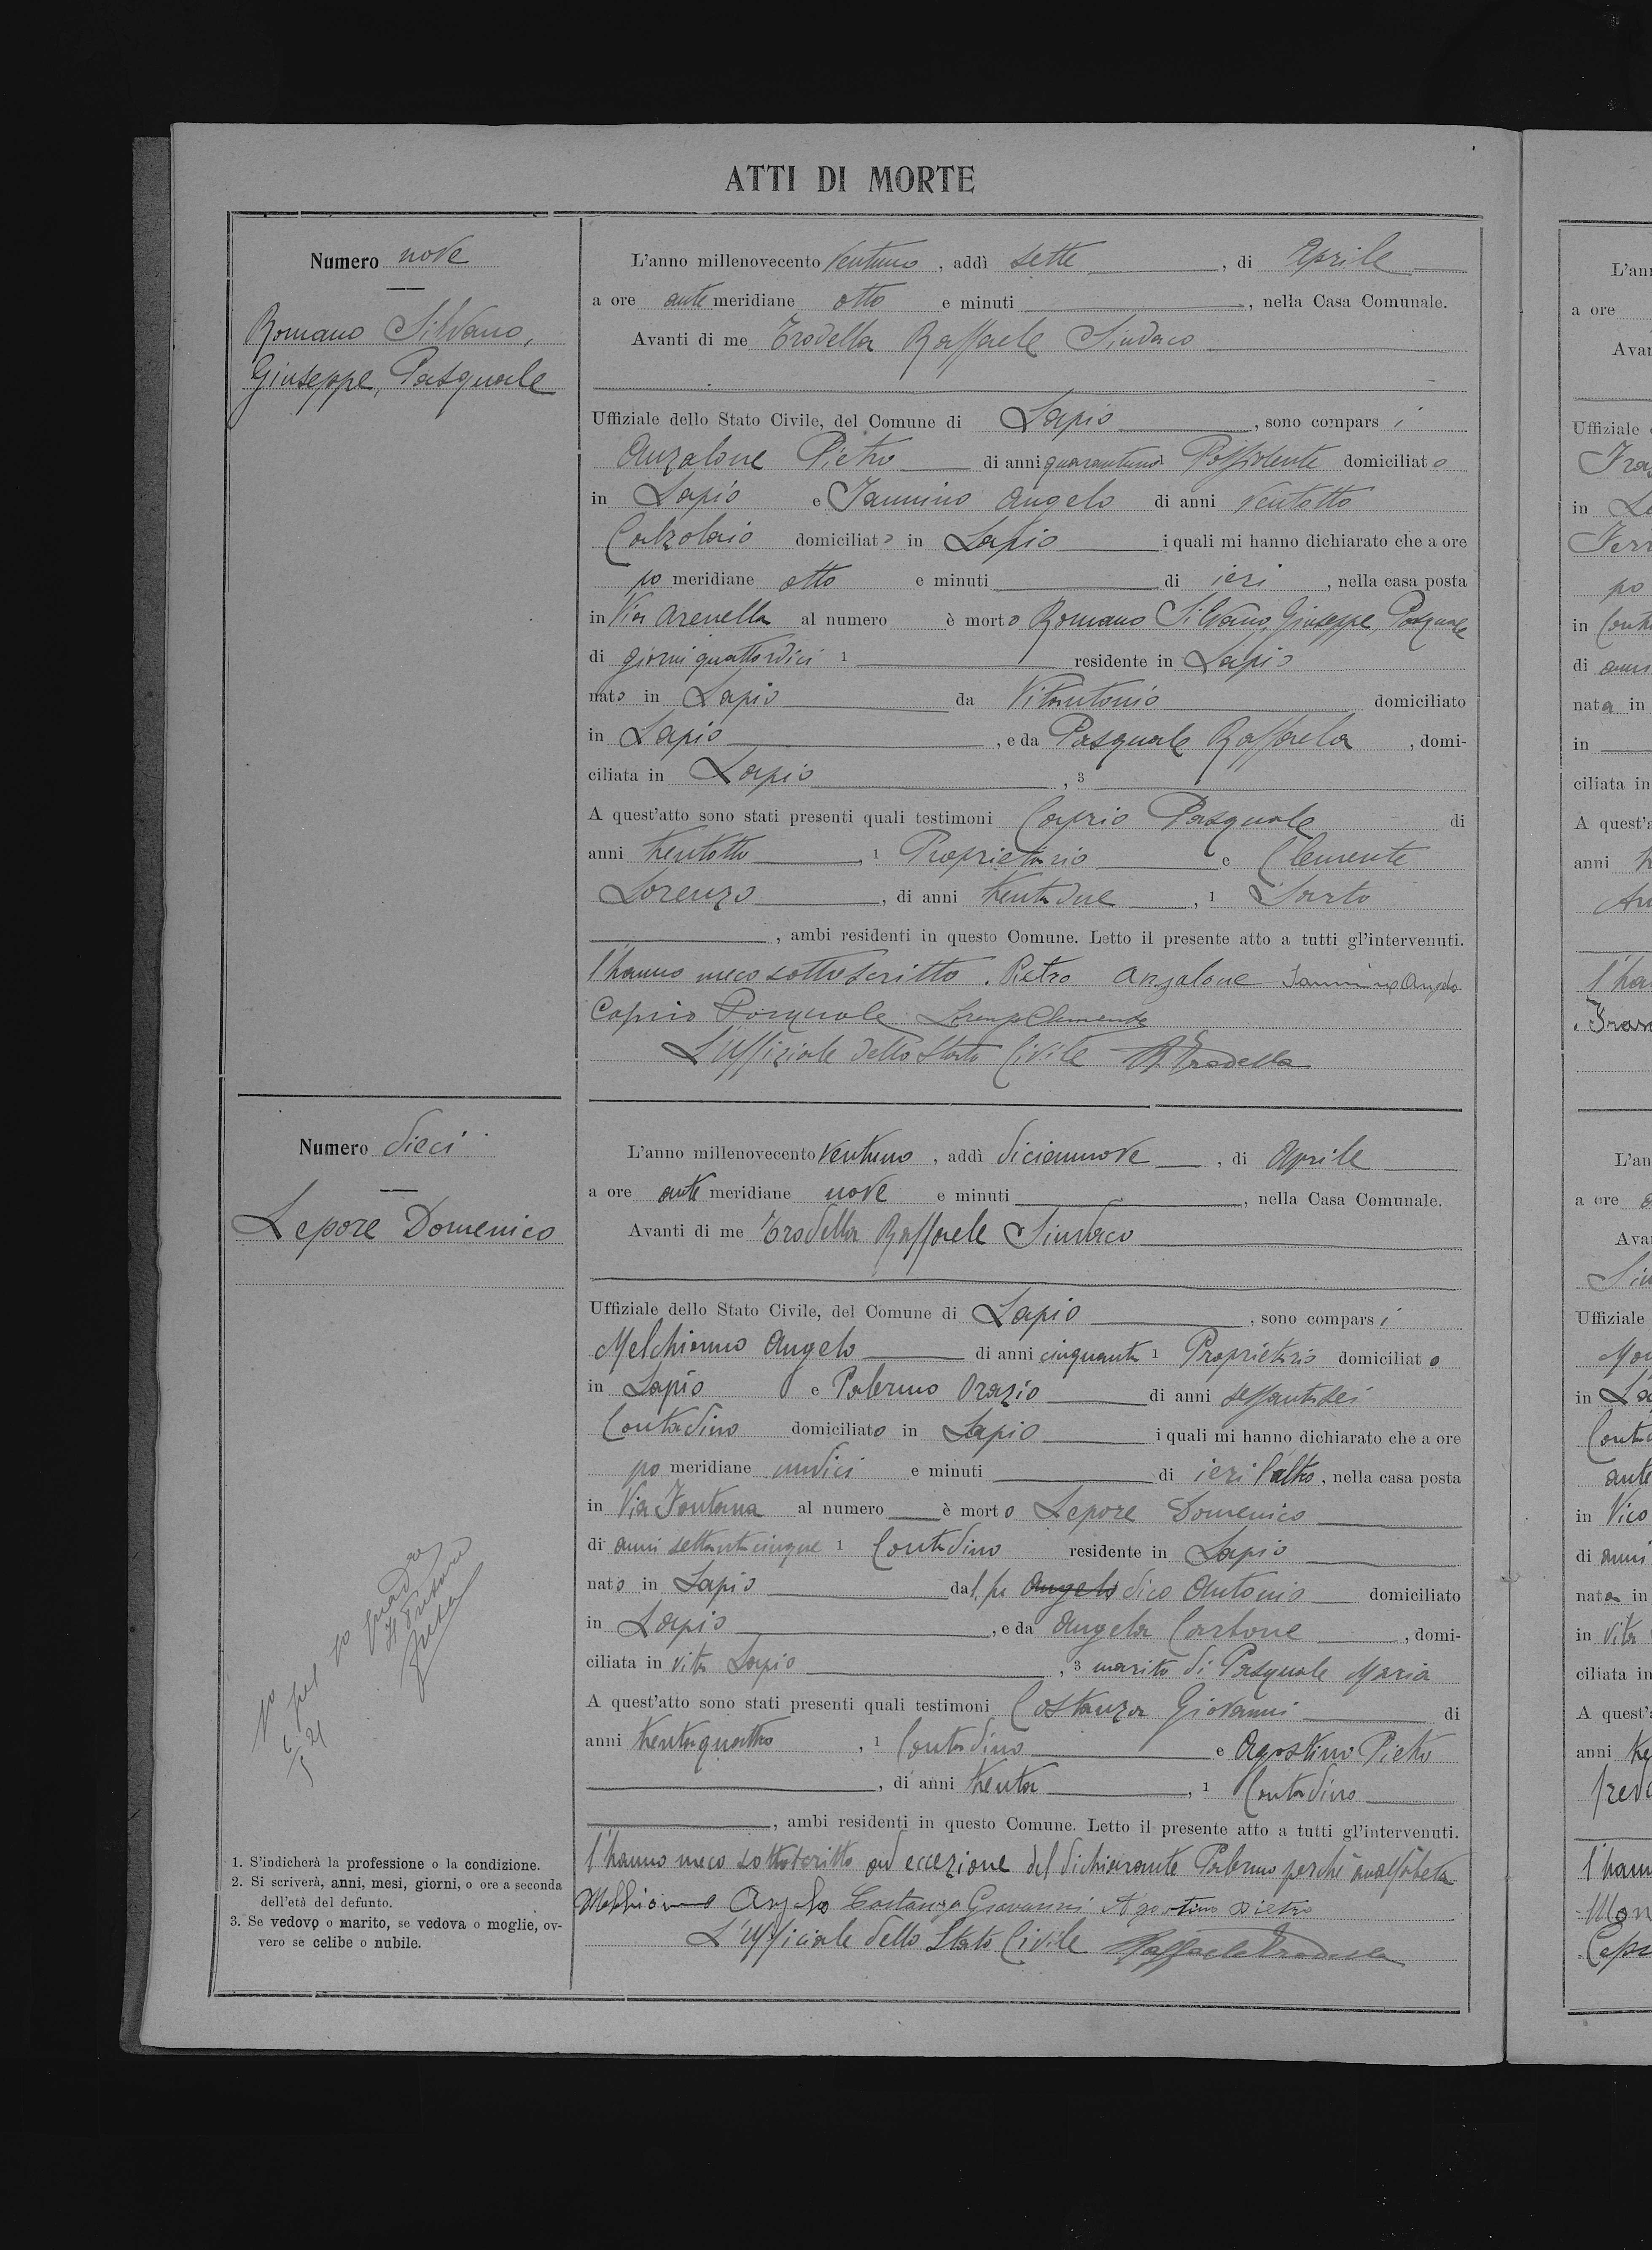 ATTI DI MORTE
Numero nove
Romano Silvano,
Giuseppe, Pasquale
L'anno millenovecento ventuno, addì sette, di Aprile
a ore antemeridiane otto e minuti, nella Casa Comunale.
Avanti di me Trodella Raffaele Sindaco
Uffiziale dello Stato Civile, del Comune di Lapio, sono comparsi
Anzalone Pietro di anni quarantuno Possidente domiciliato
in Lapio e Iannino Angelo di anni ventotto
Calzolaio domiciliato in Lapio i quali mi hanno dichiarato che a ore
pomeridiane otto e minuti di ieri, nella casa posta
in Via Arenella al numero è morto Romano Silvano, Giuseppe, Pasquale
di giorni quattordici 1 residente in Lapio
nato in Lapio da Vitantonio domiciliato
in Lapio, e da Pasquale Raffaela, domi-
ciliata in Lapio, 3
A quest'atto sono stati presenti quali testimoni Caprio Pasquale di
anni trentotto, 1 Proprietario e Clemente
Lorenzo, di anni trentadue, 1 Sarto
, ambi residenti in questo Comune. Letto il presente atto a tutti gl'intervenuti.
l'hanno meco sottoscritto. Pietro Anzalone Iannino Angelo
Caprio Pasquale Lorenzo Clemente
L'Uffiziale dello Stato Civile R. Trodella
Numero dieci
Lepore Domenico
L'anno millenovecento ventuno, addì diciannove, di Aprile
a ore antemeridiane nove e minuti, nella Casa Comunale.
Avanti di me Trodella Raffaele Sindaco
Uffiziale dello Stato Civile, del Comune di Lapio, sono comparsi
Melchionno Angelo di anni cinquanta 1 Proprietario domiciliato
in Lapio e Palermo Orazio di anni sessantasei
Contadino domiciliato in Lapio i quali mi hanno dichiarato che a ore
pomeridiane undici e minuti di ieri l'altro, nella casa posta
in Via Fontana al numero è morto Lepore Domenico
di anni settantacinque 1 Contadino residente in Lapio
nato in Lapio dal fu Angelo dico Antonio domiciliato
in Lapio, e da Angela Carbone, domi-
ciliata in vita Lapio, 3 marito di Pasquale Maria
A quest'atto sono stati presenti quali testimoni Costanza Giovanni di
anni trentaquattro, 1 Contadino e Agostino Pietro
, di anni trenta, 1 Contadino
, ambi residenti in questo Comune. Letto il presente atto a tutti gl'intervenuti.
l'hanno meco sottoscritto ad eccezione del dichiarante Palermo perchè analfabeta
Melchionno Angelo Costanza Giovanni Agostino Pietro
L'Ufficiale dello Stato Civile Raffaele Trodella
1. S'indicherà la professione o la condizione.
2. Si scriverà, anni, mesi, giorni, o ore a seconda
dell'età del defunto.
3. Se vedovo o marito, se vedova o moglie, ov-
vero se celibe o nubile.